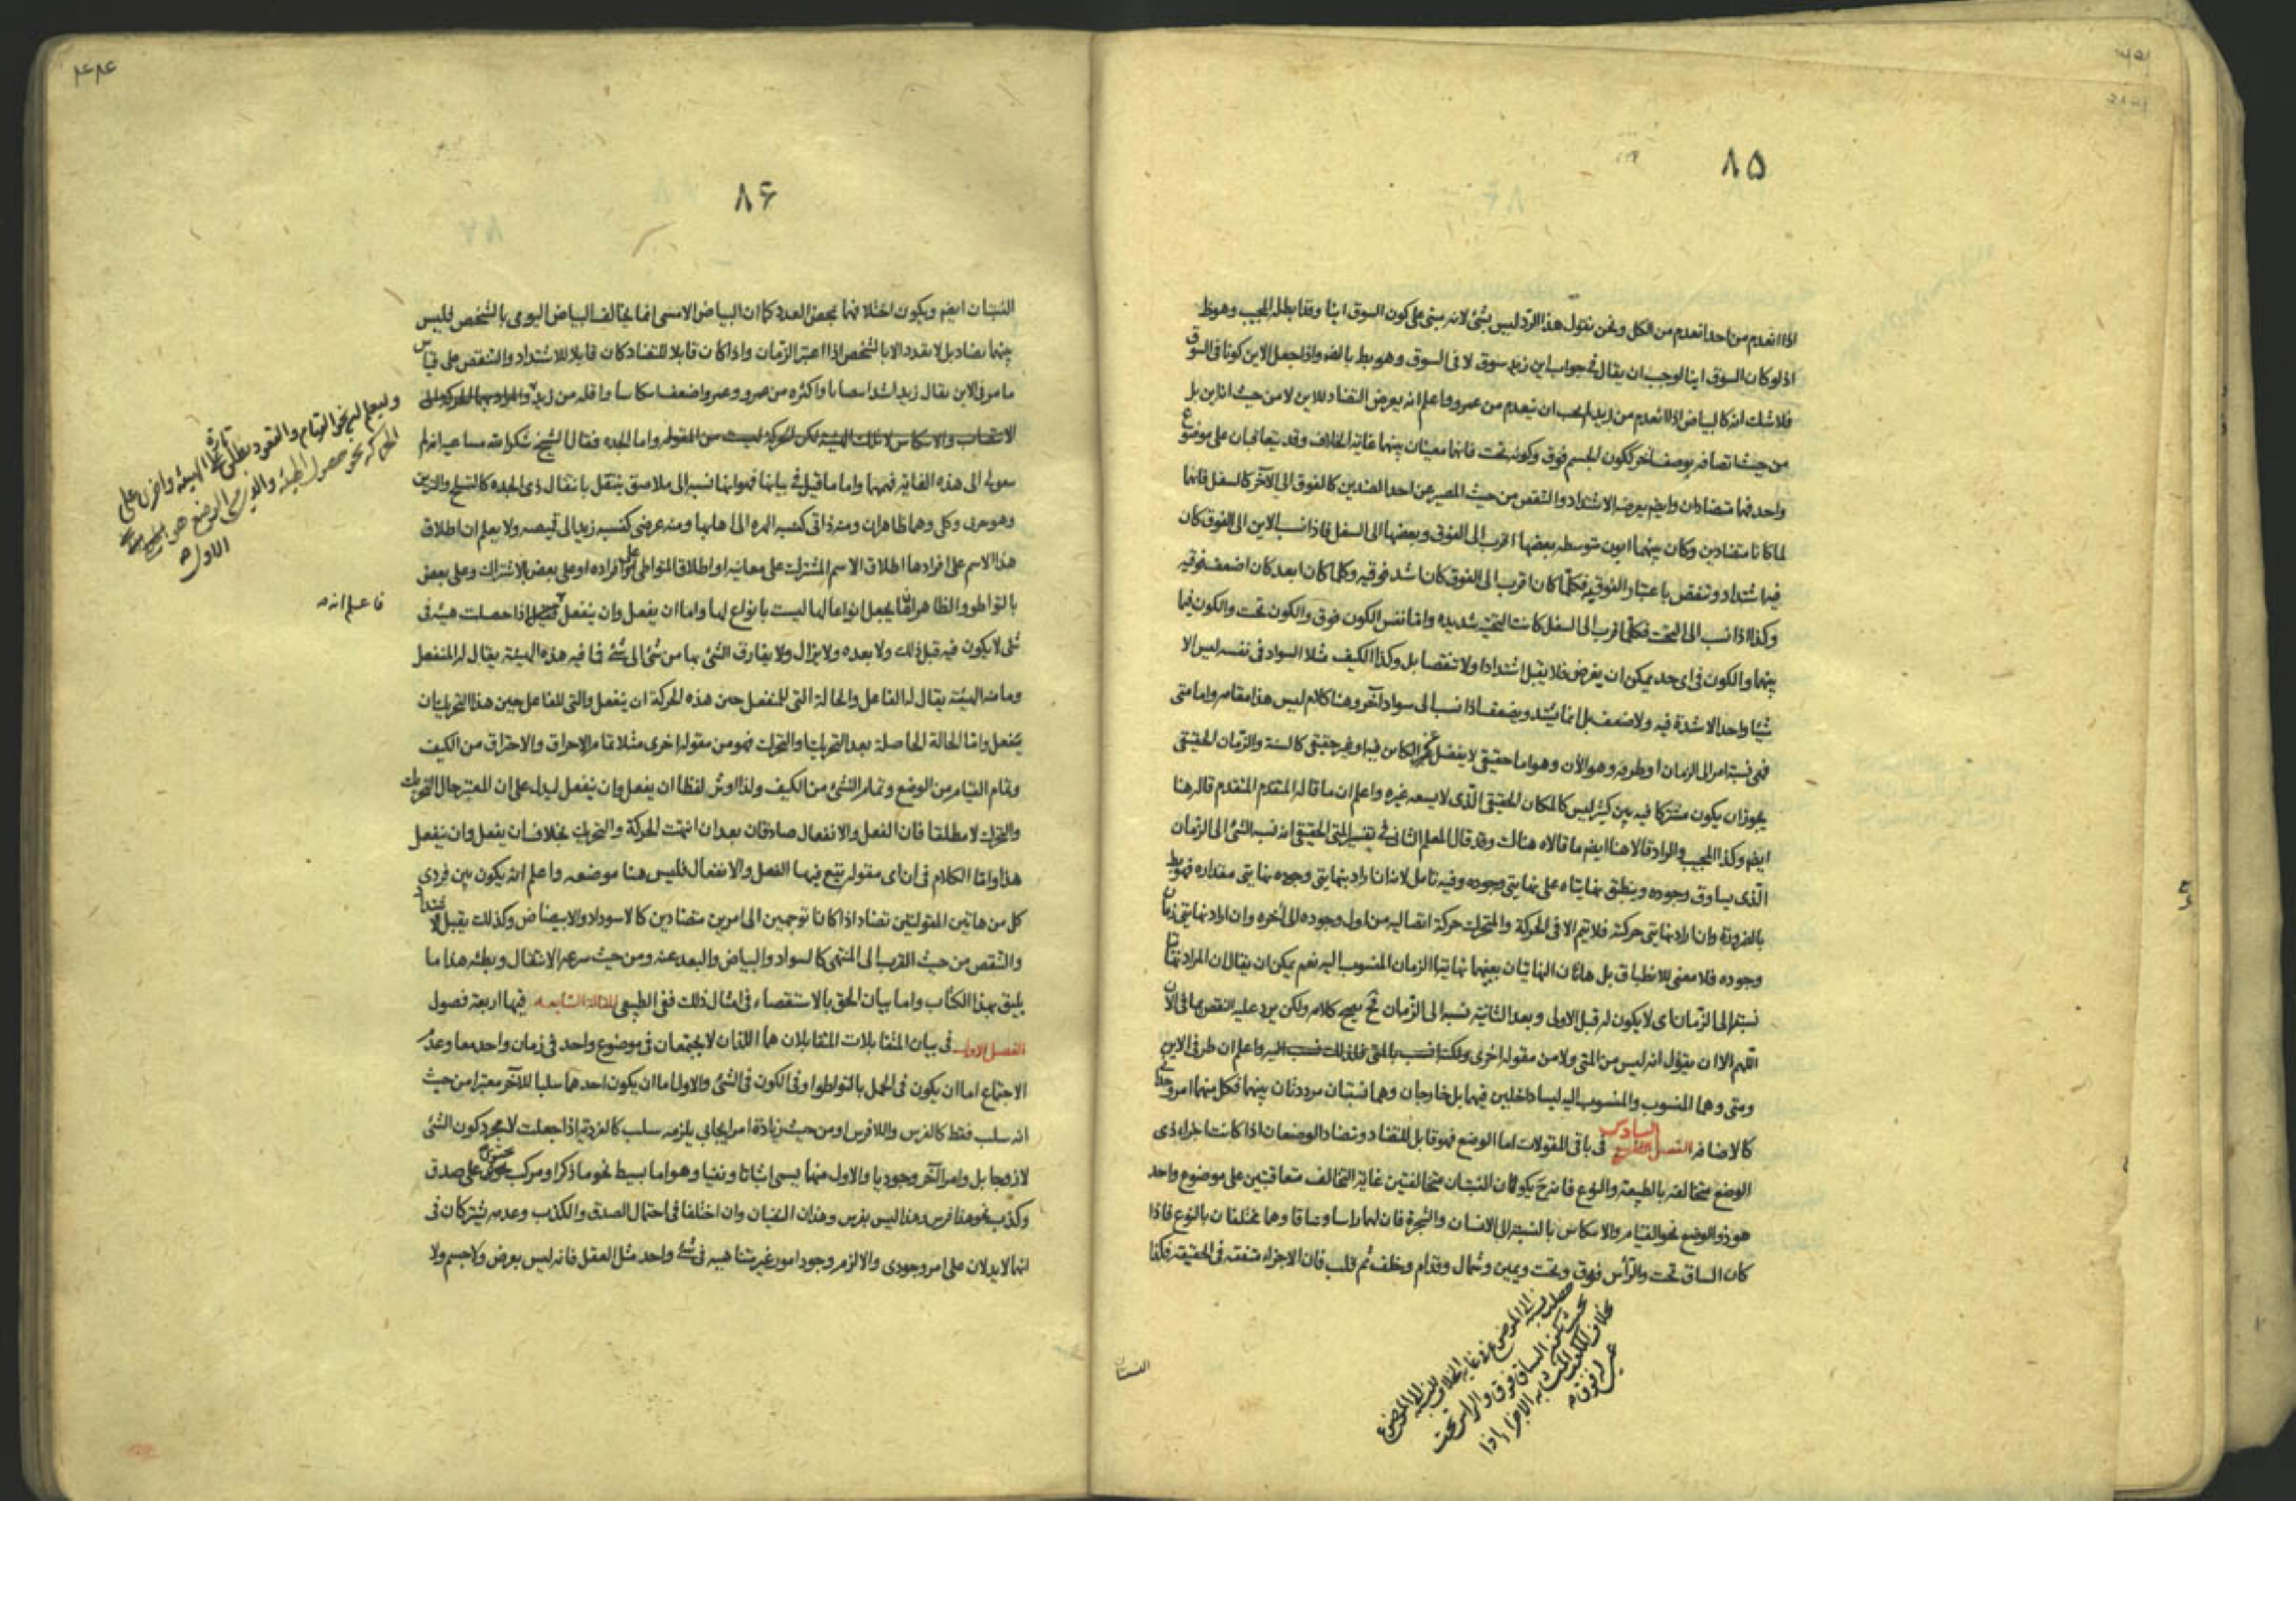 ٨٥
اذا انعدم من احد انعدم من الكل ونحن نقول هذا الرد ليس بشئ لانه مبنى على كون السوق اينا وقد ابطله المجيب وهو ظ
اذ لو كان السوق اينا لوجب ان يقال فى جواب اين زيد سوق لا فى السوق وهو بط بالضرواذا جعل الاين كونا فى السوق
فلا شك انه كالبياض اذا انعدم من زيد لم يجب ان ينعدم من عمرو واعلم انه يعرض التضاد للاين لا من حيث انه اين بل
من حيث اتصافه بوصف آخر ككون الجسم فوق وكونه تحت فانهما معينان بينهما غاية الخلاف وقد يتعاقبان على موضوع
واحد فهما متضادان وايضم يعرضه الاشتداد والتنقص من حيث المصير عن احد الضدين كالفوق الى الآخر كالسفل فانهما
لما كانا متضادين وكان بينهما ايون متوسطه بعضها اقرب الى الفوق وبعضها الى السفل فاذا نسب الاين الى الفوق كان
فيها شتداد وتنقص باعتبار الفوقيه فكلما كان اقرب الى الفوق كان اشد فوقيه وكلما كان ابعد كان اضعف فوقيه
وكذا اذا نسب الى التحت فكلما قرب الى السفل كانت التحتيه شديده واما نفس الكون فوق والكون تحت والكون فيما
بينهما والكون فى اى حد يمكن ان يفرض فلا يقبل اشتدادا ولا تنقصا بل وكذا الكيف مثلا السواد فى نفسه ليس الا
شيئا واحدا لا شدة فيه ولا ضعف بل انما يشتد ويضعف اذا نسب الى سواد آخر وهنا كلام ليس هذا مقامه واما متى
فهى نسبة امر الى الزمان او طرفه وهو الآن وهو اما حقيقى لا يفضل عن الكاين فيه او غير حقيقى كالسنة والزمان الحقيقى
يجوز ان يكون مشتركا فيه بين كثير ليس كالمكان الحقيقى الذى لا يسعه غيره واعلم ان ما قاله المتقدم المتقدم قاله هنا
ايضم وكذا المجيب والراد قالا هنا ايضم ما قالاه هناك وقد قال المعلم الثانى فى تفسير المتى الحقيقى انه نسبة الشئ الى الزمان
الذى يساوق وجوده وينطبق نهايتاه على نهايتى وجوده وفيه تامل لانه ان اراد بنهايتى وجوده نهايتى مقداره فهو بط
بالضرورة وان اراد نهايتى حركته فلا يتم الا فى الحركة والمتحرك حركة اتصاليه من اول وجوده الى آخره وان اراد نهايتى زمان
وجوده فلا معنى للانطباق بل هاتان النهايتان بعينهما نهايتا الزمان المنسوب اليه نعم يمكن ان يقال ان المراد نهايتا
نسبته الى الزمان اى لا يكون له قبل الاولى وبعد الثانية نسبة الى الزمان فح يصح كلامه ولكن يرد عليه النقص بما فى الآن
اللهم الا ان يقول انه ليس من المتى ولا من مقوله اخرى واعلم ان طرفى الاين
ومتى وهما المنسوب والمنسوب اليه ليسا داخلين فيهما بل خارجان وهما نسبتان مرددتان بينهما فكل منهما امر وحدا
كالاضافه الفصل السادس فى باقى المقولات اما الوضع فهو قابل للتضاد وتضاد الوضعان اذا كانت اجزاء ذى
الوضع متخالفه بالطبيعة والنوع فانه ح يكونان النسبتان متخالفتين غاية التخالف متعاقبتين على موضوع واحد
هو ذو الوضع نحو القيام والانتكاس بالنسبة الى الانسان والشجرة فان لهما راسا وساقا وهما مختلفان بالنوع فاذا
كان الساق تحت والرأس فوق وتحت ويمين وشمال وقدام وخلف ثم قلب فان الاجزاء متفقه فى الحقيقه فكذا
بحيث يكون الساق فوق والراس تحت
بخلاف المكعب المتشابه الاجزاء اذا
النسبتان
٨۶
النسبتان ايضم ويكون اختلافهما بمحض العدد كما ان البياض الامسى انما يخالف البياض اليومى بالشخص فليس
بينهما تضاد بل لا تعدد الا بالشخص اذا اعتبر الزمان واذا كان قابلا للتضاد كان قابلا للاشتداد والتنقص على قياس
ما مر فى الاين يقال زيد اشد انتصابا واكثره من عمرو وعمرو اضعف انتكاسا واقله من زيد
الانتصاب والانتكاس لا تلك الهيئه لكن الحركة ليست من المقوله واما الجده فقال الشيخ شكر الله مساعيه انه لم
هذه الغايه فهمها واما ما قيل فى بيانها فهو انها نسبه الى ملاصق ينتقل بانتقال ذى الجده كالتسلح والتزين
وهو جزى وكل وهما ظاهران ومنه ذاتى كنسبه الهره الى اهابها ومنه عرضى كنسبه زيد الى قميصه ولا يعلم ان اطلاق
هذا الاسم على افرادها اطلاق الاسم المشترك على معانيه او اطلاق المتواطى على افراده او على بعض بالاشتراك وعلى بعض
بالتواطو والظاهر انها يجعل انواعا لها ليست بانواع لها واما ان يفعل وان ينفعل اذا حصلت هيئه فى
شئ لا يكون فيه قبل ذلك ولا بعده ولا يزال ولا يفارق الشئ بها من شئ الى شئ فما فيه هذه الهيئة يقال له المنفعل
وما منه الهيئة يقال له الفاعل والحالة التى للمنفعل حين هذه الحركة ان ينفعل والتى للفاعل حين هذا التحريك ان
يفعل واما الحالة الحاصلة بعد التحريك والتحرك فهو من مقوله اخرى مثلا تمام الاحراق والاحتراق من الكيف
وتمام القيام من الوضع وتمام التسخن من الكيف ولذا اوثر لفظا ان يفعل وان ينفعل ليدل على ان المعتبر حال التحريك
والتحرك لا مطلقا فان الفعل والانفعال صادقان بعد ان انتهت الحركة والتحريك بخلاف ان يفعل وان ينفعل
هذا واما الكلام فى ان اى مقوله تقع فيها الفعل والانفعال فليس هنا موضعه واعلم انه يكون بين فردى
كل من هاتين المقولتين تضاد اذا كانا توجهين الى امرين متضادين كالاسوداد والابيضاض وكذلك يقبل الاشتداد
والتنقص من حيث القرب الى المنتهى كالسواد والبياض والبعد عنه ومن حيث سرعه الانتقال وبطئه هذا ما
يليق بهذا الكتاب واما بيان الحق بالاستقصاء فى امثال ذلك ففى الطبيعى المقالة السابعه فيها اربعة فصول
الفصل الاول فى بيان المتقابلات المتقابلان هما اللذان لا يجتمعان فى موضوع واحد فى زمان واحد معا وعدم
الاجتماع اما ان يكون فى الحمل بالتواطوا وفى الكون فى الشئ والاول اما ان يكون احدهما سلبا للآخر معتبرا من حيث
انه سلب فقط كالفرس واللافرس او من حيث زيادة امر ايجابى يلزمه سلب كالفردية اذا جعلت لا مجرد كون الشئ
لا زوجا بل وامرا آخر وجوديا والاول منهما يسمى اثباتا ونفيا وهو اما بسيط نحو ما ذكر او مركب محتوى على صدق
وكذب نحو هذا فرس وهذا ليس بفرس وهذان النفيان وان اختلفا فى احتمال الصدق والكذب وعدمه يشتركان فى
انهما لا يدلان على امر وجودى والا لزم وجود امور غير متناهيه فى شئ واحد مثل العقل فانه ليس بعرض ولا جسم ولا
وليعلم ان نحو القيام والقعود يطلق تارة على الهيئة واخرى على
فاعلم انه